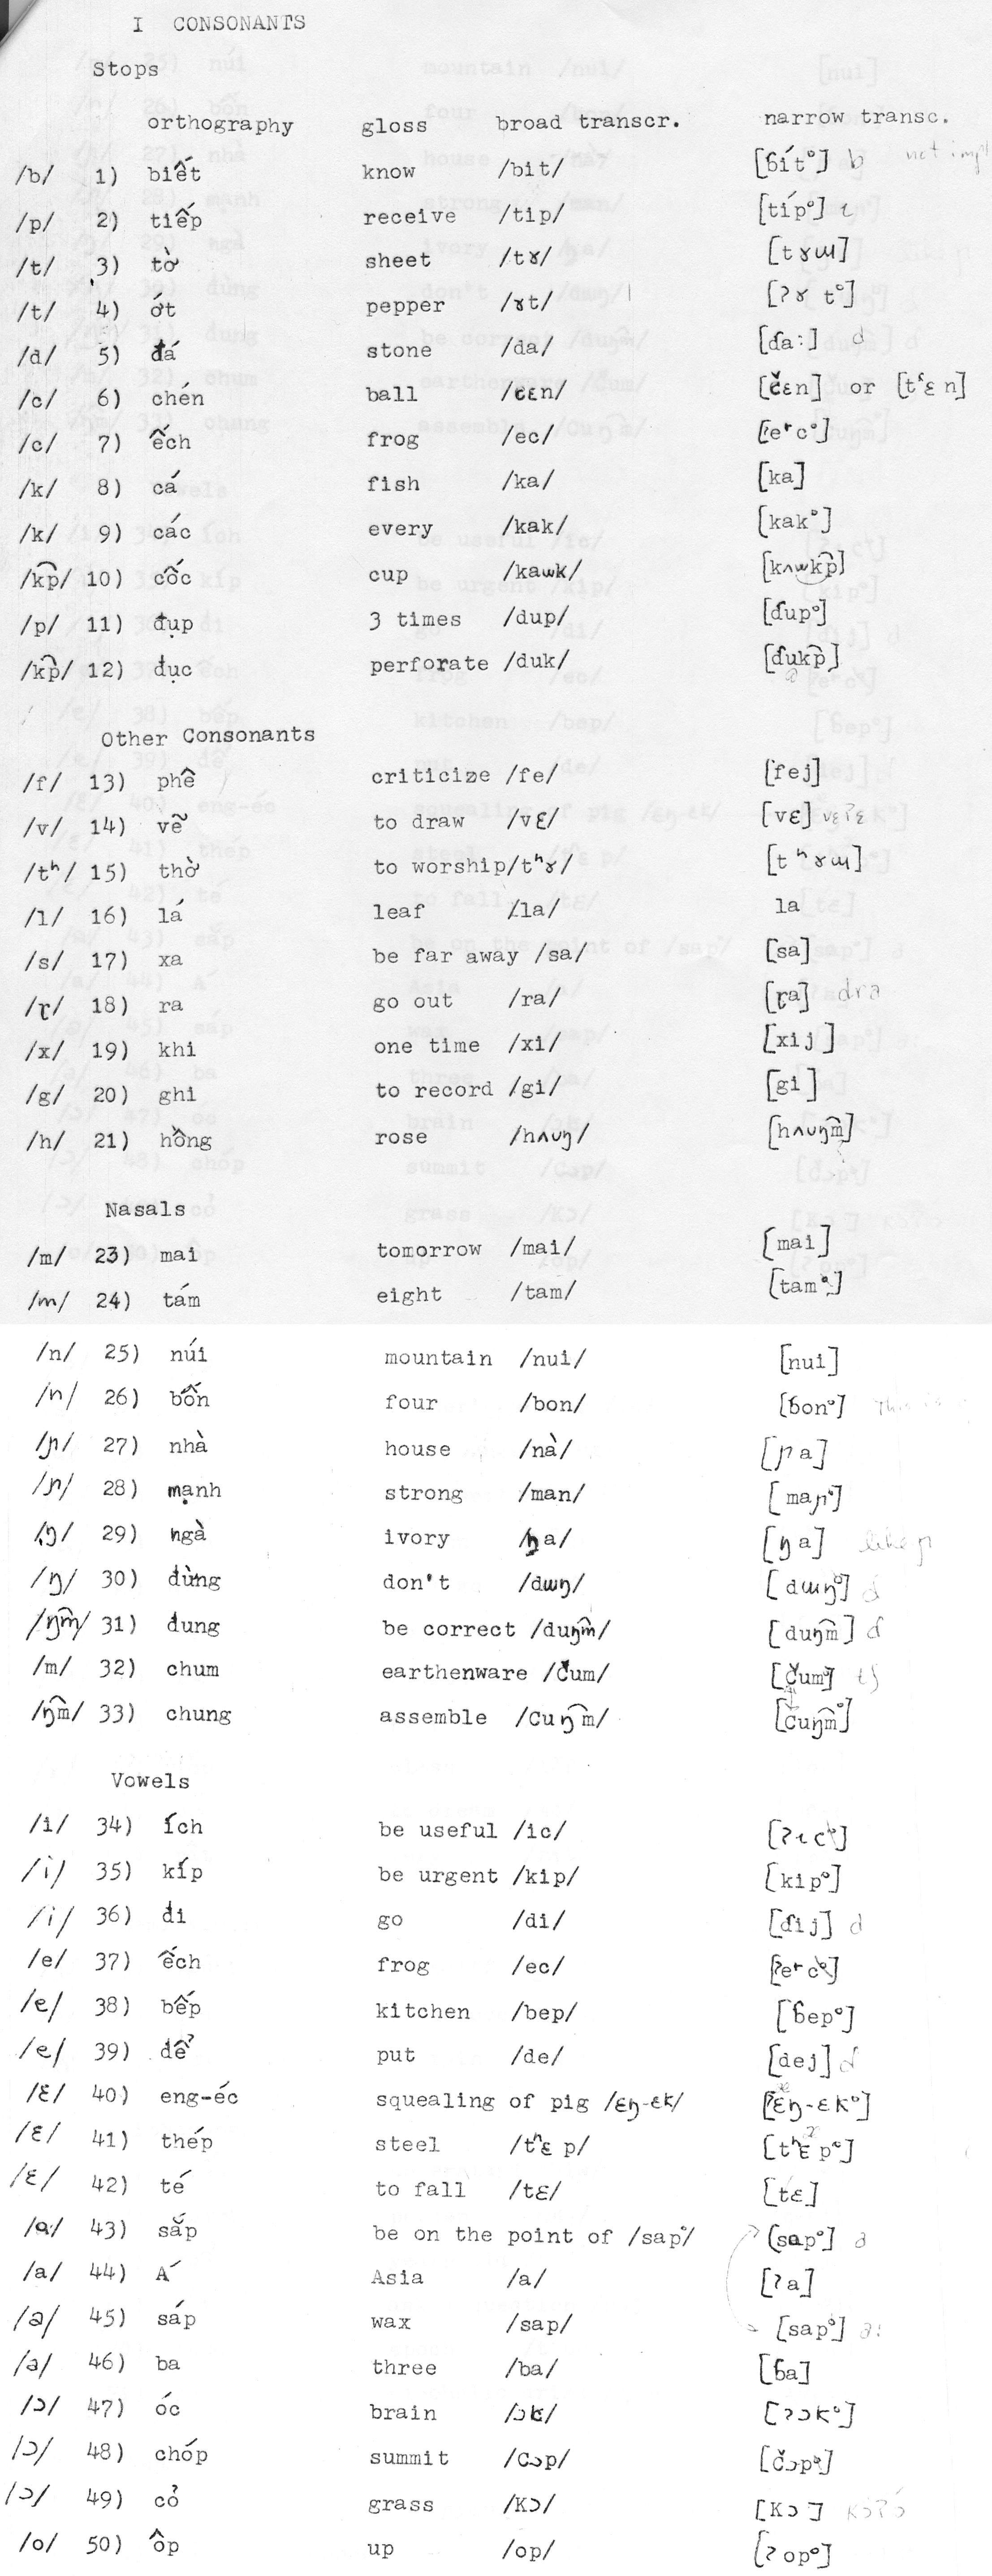 I CONSONANTS
Stops
orthography gloss broad transcr. narrow transc.
/b/ 1) biết know /bit/ [ɓít°] b not impl
/p/ 2) tiếp receive /tip/ [típ°] ɩ
/t/ 3) tờ sheet /tɤ/ [tɤɯ]
/t/ 4) ớt pepper /ɤt/ [ʔɤ t°]
/d/ 5) đá stone /da/ [ɗa:] d
/c/ 6) chén ball /cɛn/ [čɛn] or [tʻɛn]
/c/ 7) ếch frog /ec/ [ʔe˔c°]
/k/ 8) cá fish /ka/ [ka]
/k/ 9) các every /kak/ [kak°]
/k͡p/ 10) cốc cup /kawk/ [kʌwk͡p]
/p/ 11) đụp 3 times /dup/ [ɗup°]
/k͡p/ 12) đục perforate /duk/ [ɗuk͡p]
Other Consonants
/f/ 13) phê criticize /fe/ [fej]
/v/ 14) vẽ to draw /vɛ/ [vɛ] vɛʔɛ
/tʰ/ 15) thờ to worship /tʰɤ/ [tʰɤɯ]
/l/ 16) lá leaf /la/ la
/s/ 17) xa be far away /sa/ [sa]
/ɽ/ 18) ra go out /ra/ [ɽa] dra
/x/ 19) khi one time /xi/ [xij]
/g/ 20) ghi to record /gi/ [gi]
/h/ 21) hồng rose /hʌuŋ/ [hʌuŋ͡m]
Nasals
/m/ 23) mai tomorrow /mai/ [mai]
/m/ 24) tám eight /tam/ [tam°]
/n/ 25) núi mountain /nui/ [nui]
/n/ 26) bốn four /bon/ [ɓon°] This is
/ɲ/ 27) nhà house /nà/ [ɲa]
/ɲ/ 28) mạnh strong /man/ [maɲ°]
/ŋ/ 29) ngà ivory /ŋa/ [ŋa] like ɲ
/ŋ/ 30) đừng don't /dɯŋ/ [dɯŋ°] ɗ
/ŋ͡m/ 31) đung be correct /duŋ͡m/ [duŋ͡m] ɗ
/m/ 32) chum earthenware /čum/ [čum°] tʃ
/ŋ͡m/ 33) chung assemble /Cuŋ͡m/ [cuŋ͡m°]
Vowels
/i/ 34) ích be useful /ic/ [ʔɩc°]
/i/ 35) kíp be urgent /kip/ [kip°]
/i/ 36) đi go /di/ [ɗij] d
/e/ 37) ếch frog /ec/ [ʔe˔c°]
/e/ 38) bếp kitchen /bep/ [ɓep°]
/e/ 39) dể put /de/ [dej] ɗ
/ɛ/ 40) eng-éc squealing of pig /ɛŋ-ɛk/ [ʔɛŋ-ɛk°]
/ɛ/ 41) thép steel /tʰɛ p/ [tʰɛ p°]
/ɛ/ 42) té to fall /tɛ/ [tɛ]
/a/ 43) sắp be on the point of /sap°/ [sap°] a
/a/ 44) Á Asia /a/ [ʔa]
/a/ 45) sáp wax /sap/ [sap°] a:
/a/ 46) ba three /ba/ [ɓa]
/ɔ/ 47) óc brain /ɔk/ [ʔɔk°]
/ɔ/ 48) chóp summit /Cɔp/ [čɔp°]
/ɔ/ 49) cỏ grass /Kɔ/ [Kɔ] kɔ̀ʔɔ́
/o/ 50) ôp up /op/ [ʔop°]